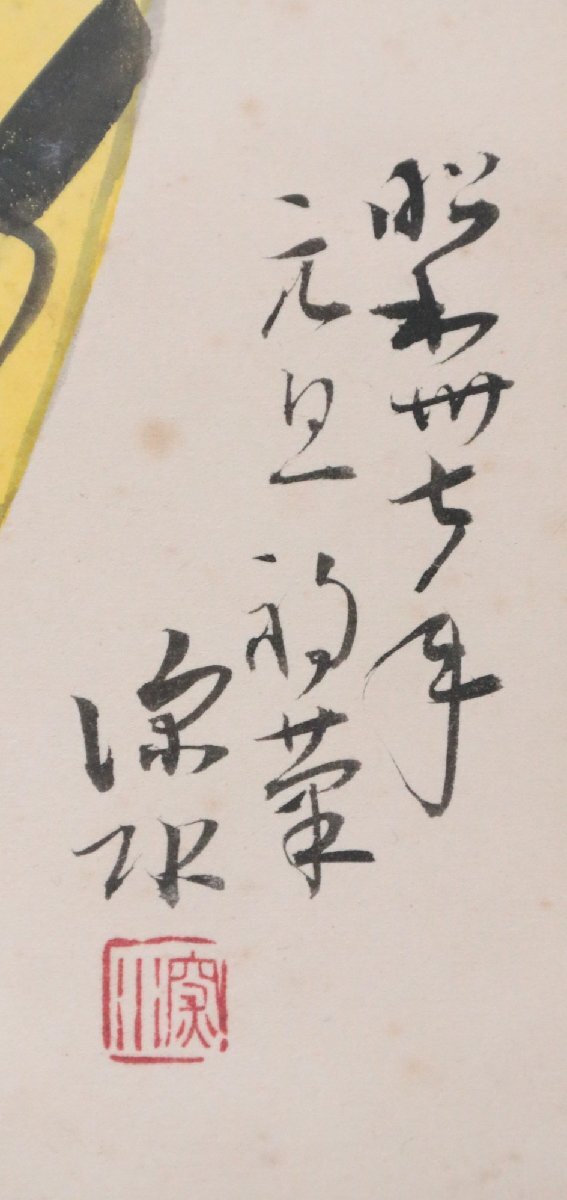 昭和卅七年
元旦 初筆
深水
深水